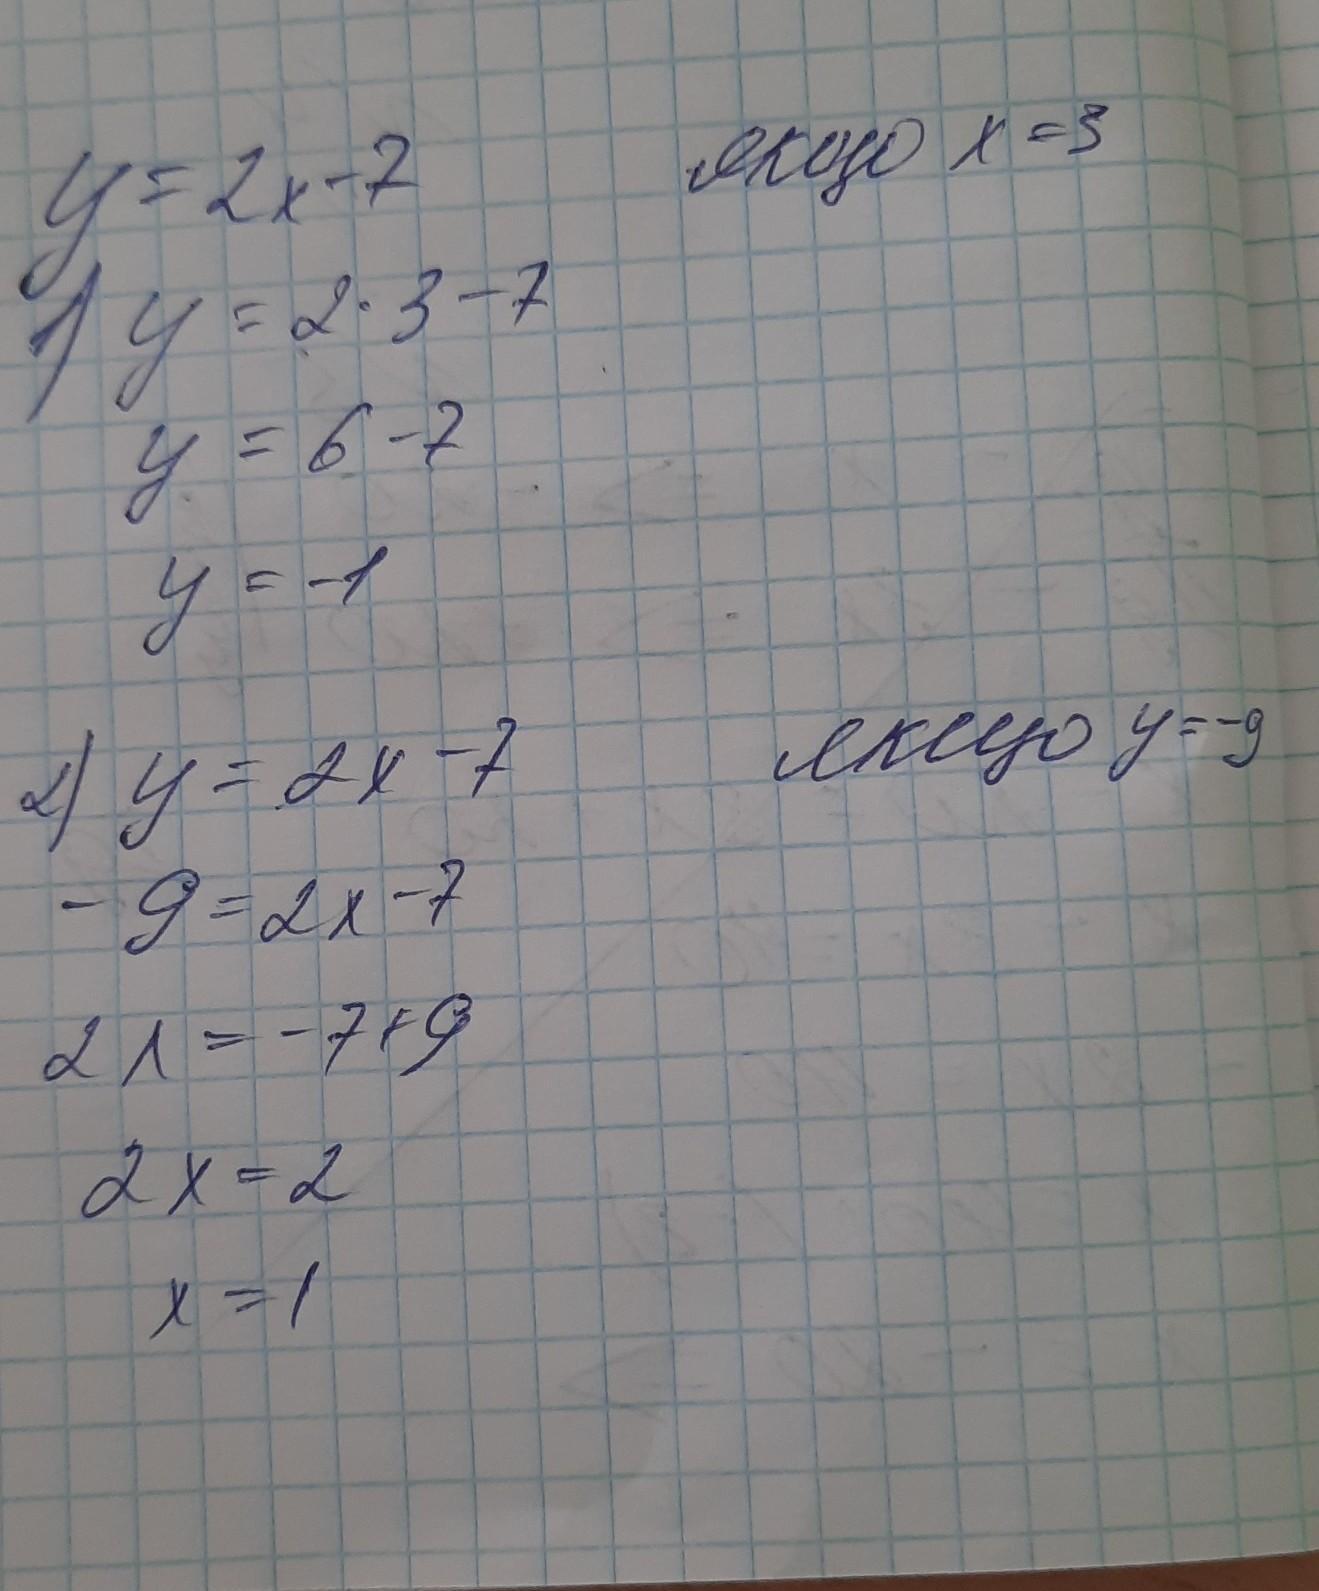 y = 2x - 7 якщо x = 3
1) y = 2 · 3 - 7
y = 6 - 7
y = -1
2) y = 2x - 7 якщо y = -9
- 9 = 2x - 7
2x = - 7 + 9
2x = 2
x = 1